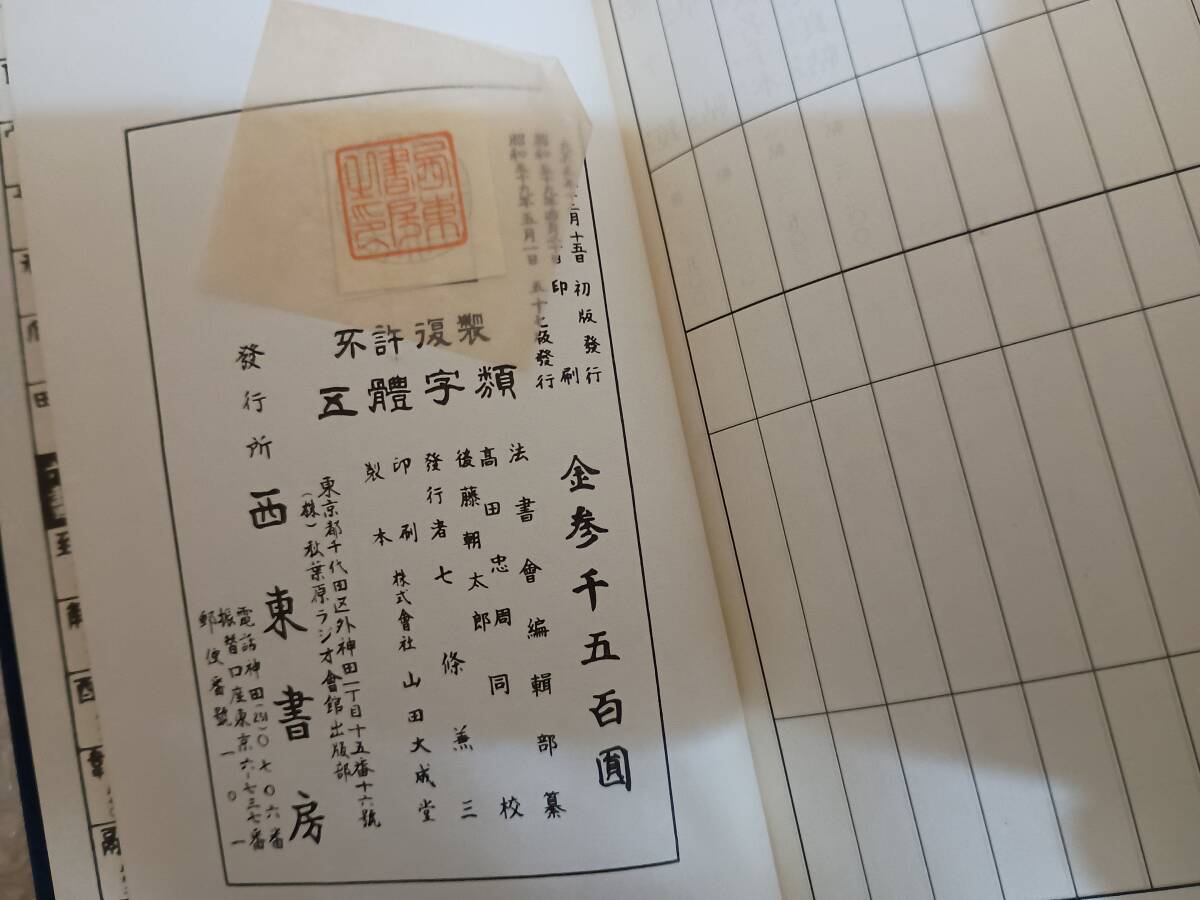 二月十五日 初版發行
印刷
昭和五十九年五月一日 五十七版發行
金参千五百圓
不許復製
五體字類
法書會編輯部纂
高田忠周同校
後藤朝太郎
發行者七條兼三
印刷 株式會社山田大成堂
製本
東京都千代田区外神田一丁目十五番十六號
(株)秋葉原ラジオ會館出版部
發行所 西東書房
電話神田(251)〇七〇六番
振替口座東京六-七三七番
郵便番號一〇一
西東書房之印